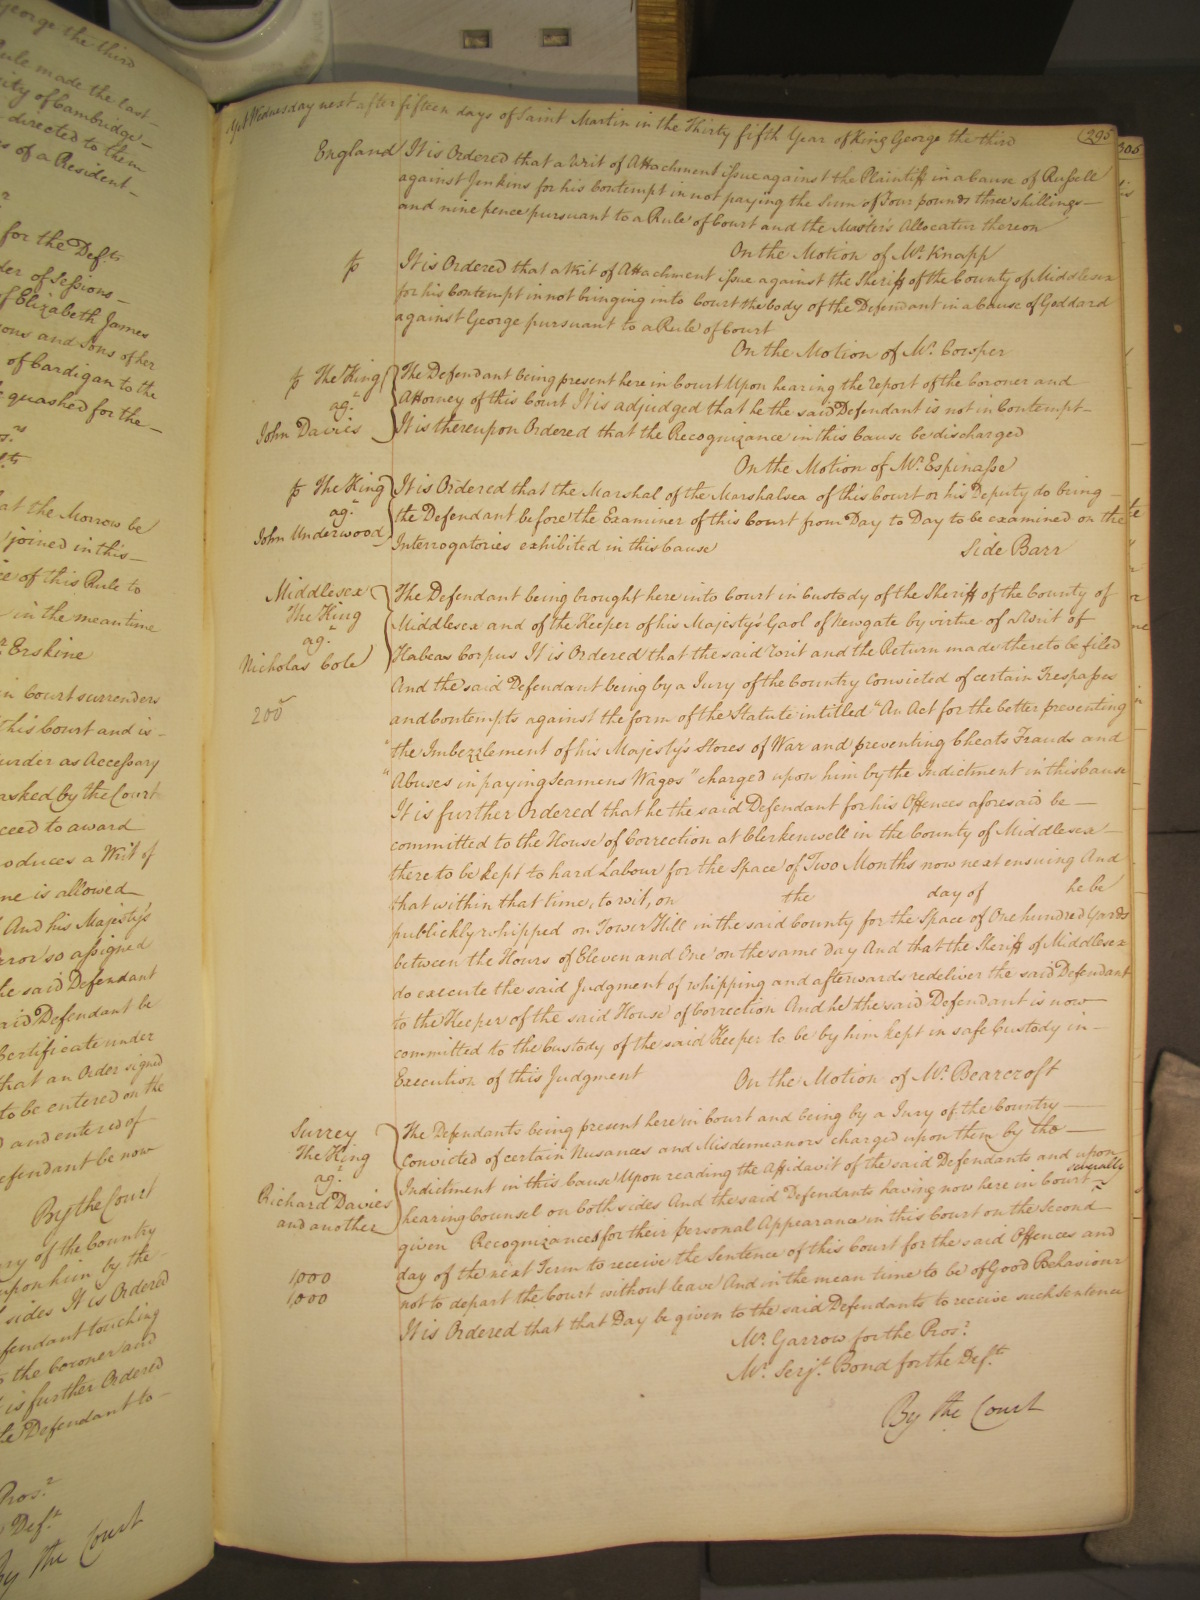 George the third
Rule made the last
ity of Cambridge
directed to them
s of a Resident
for the Def.ts
der of Sessions
of Elizabeth James
ons and Sons of her
of Cardigan to the
quashed for the
at the Morrow be
joined in this
ce of this Rule to
in the meantime
Erskine
in Court surrenders
this Court and is
urder as Accessary
asked by the Court
ceed to award
oduces a Writ of
me is allowed
And his Majesty's
rror so assigned
he said Defendant
aid Defendant be
Certificate under
that an Order signed
to be entered on the
d and entered of
efendant be now
By the Court
ury of the Country
upon him by the
sides It is Ordered
fendant touching
the Coroner and
is further Ordered
he Defendant to
Pros.r
Def.t
By the Court
Yet Wednesday next after fifteen days of Saint Martin in the Thirty fifth Year of King George the third 295
305
England It is Ordered that a Writ of Attachment issue against the Plaintiff in a Cause of Russell
against Jenkins for his Contempt in not paying the Sum of Four pounds three shillings
and nine pence pursuant to a Rule of Court and the Master's Allocatur thereon
On the Motion of Mr. Knapp
It is Ordered that a Writ of Attachment issue against the Sheriff of the County of Middlesex
for his Contempt in not bringing into Court the body of the Defendant in a Cause of Goddard
against George pursuant to a Rule of Court
On the Motion of Mr. Cowper
The King
ag.t
John Davies
The Defendant being present here in Court Upon hearing the report of the Coroner and
Attorney of this Court It is adjudged that he the said Defendant is not in Contempt
It is thereupon Ordered that the Recognizance in this Cause be discharged
On the Motion of Mr. Espinasse
The King
ag.t
John Underwood
It is Ordered that the Marshal of the Marshalsea of this Court or his Deputy do bring
the Defendant before the Examiner of this Court from Day to Day to be examined on the
Interrogatories exhibited in this Cause
Side Barr
Middlesex
The King
ag.t
Nicholas Cole
200
The Defendant being brought here into Court in Custody of the Sheriff of the County of
Middlesex and of the Keeper of his Majesty's Gaol of Newgate by virtue of a Writ of
Habeas Corpus It is Ordered that the said Writ and the Return made thereto be filed
And the said Defendant being by a Jury of the Country Convicted of certain Trespasses
and Contempts against the form of the Statute intitled "An Act for the better preventing
"the Imbezzlement of his Majesty's Stores of War and preventing Cheats Frauds and
"Abuses in paying Seamens Wages" charged upon him by the Indictment in this Cause
It is further Ordered that he the said Defendant for his Offences aforesaid be
committed to the House of Correction at Clerkenwell in the County of Middlesex
there to be kept to hard Labour for the Space of Two Months now next ensuing And
that within that time, to wit, on the day of he be
publickly whipped on Tower Hill in the said County for the Space of One hundred Yards
between the Hours of Eleven and One on the same day And that the Sheriff of Middlesex
do execute the said Judgment of whipping and afterwards redeliver the said Defendant
to the Keeper of the said House of Correction And he the said Defendant is now
committed to the Custody of the said Keeper to be by him kept in safe Custody in
Execution of this Judgment
On the Motion of Mr. Bearcroft
Surrey
The King
ag.t
Richard Davies
and another
1,000
1,000
The Defendants being present here in Court and being by a Jury of the Country
Convicted of certain Nusances and Misdemeanors charged upon them by the
Indictment in this Cause Upon reading the Affidavit of the said Defendants and upon
hearing Counsel on both sides And the said Defendants having now here in Court severally
given Recognizances for their personal Appearance in this Court on the Second
day of the next Term to receive the Sentence of this Court for the said Offences and
not to depart the Court without leave And in the mean time to be of Good Behaviour
It is Ordered that that Day be given to the said Defendants to receive such Sentence
Mr. Garrow for the Pros.r
Mr. Serj.t Bond for the Def.ts
By the Court